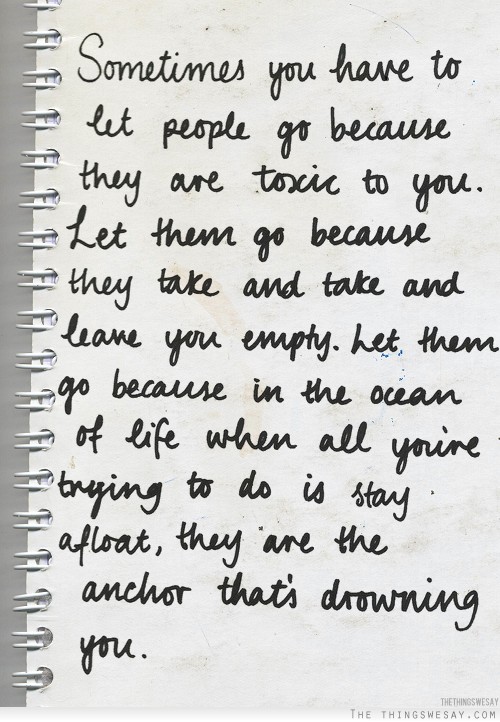 Sometimes you have to
let people go because
they are toxic to you.
Let them go because
they take and take and
leave you empty. Let them
go because in the ocean
of life when all you're
trying to do is stay
afloat, they are the
anchor that's drowning
you.
THETHINGSWESAY
THE THINGSWESAY.COM